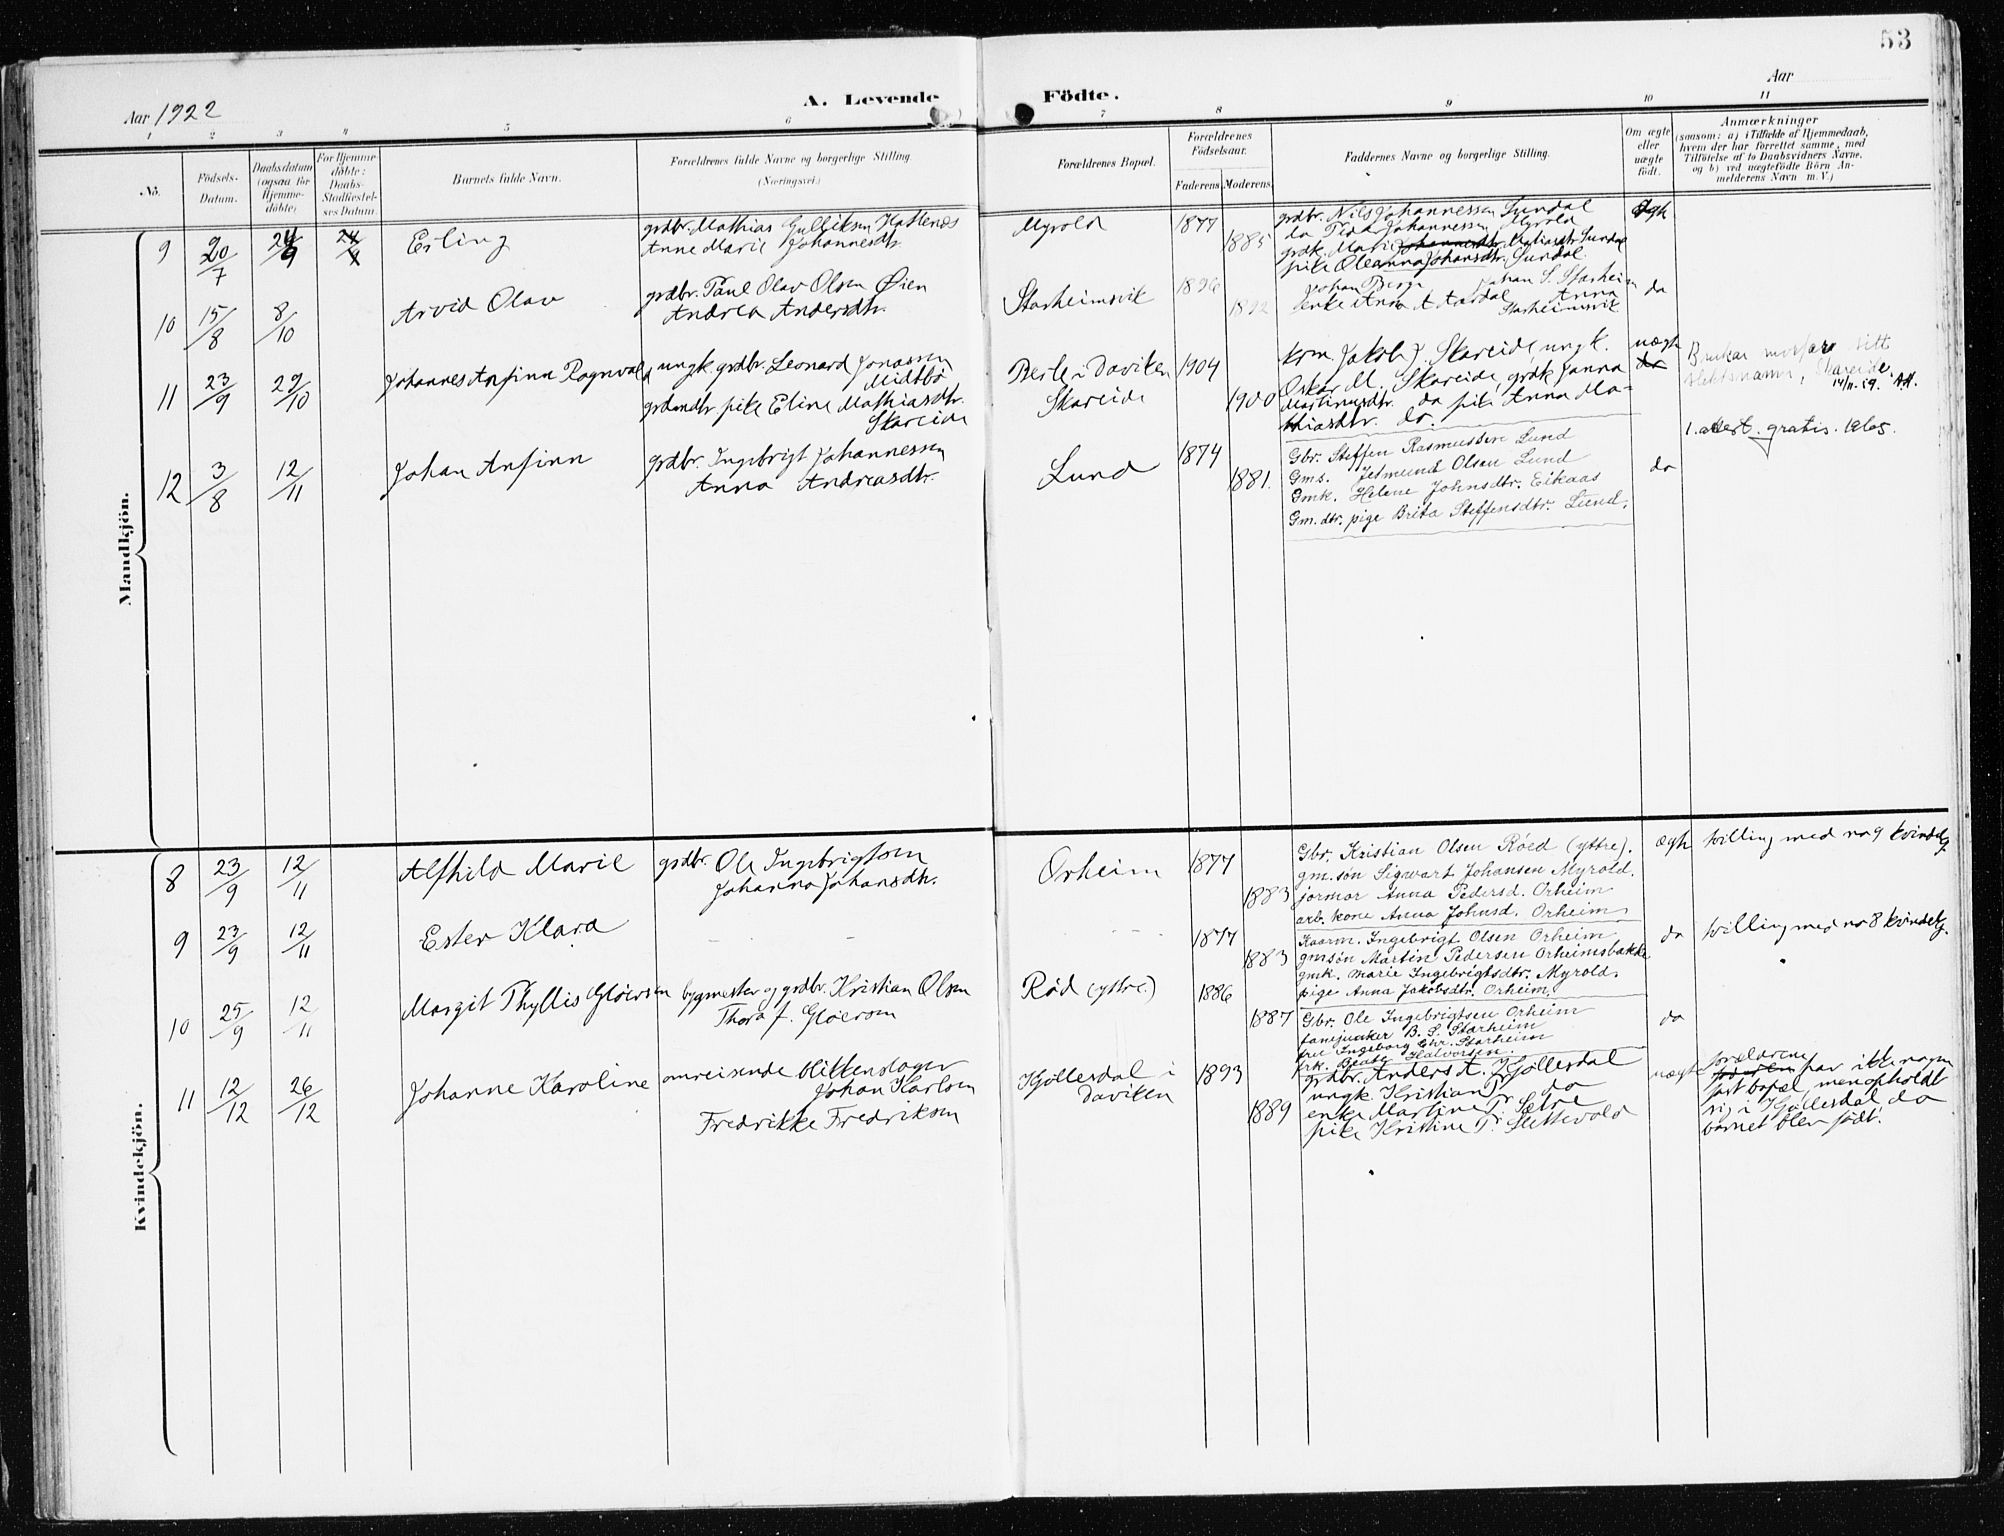 53
Aar 1922
A. Levende Födte.
Aar
1 2 3 4 5 6 7 8 9 10 11
No.
Födsels-Datum.
Daabsdatum (ogsaa for Hjemme-döbte)
For Hjemme-döbte: Daabs-Stadfæstel-ses Datum.
Barnets fulde Navn.
Forældrenes fulde Navne og borgerlige Stilling.
(Næringsvei.)
Forældrenes Bopæl.
Forældrenes Födselsaar.
Faderens. Moderens.
Faddernes Navne og borgerlige Stilling.
Om ægte eller uægte födt.
Anmærkninger
(saasom: a) i Tilfælde af Hjemmedaab,
hvem der har forrettet samme, med
Tilföielse af to Daabsvidners Navne.
og b) ved uægtefödte Börn An-
melderens Navn m. V.)
Mandkjön.
9 20/7 Erling
grdbr. Mathias Gulliksen Hatlenæs
Anne Marie Johannesdtr.
Myrold 1877 1885
grdbr. Nils Johannessen Sundal
da Peder Johannessen Myrold
grdk. Mari Johannesdtr. Matiasdtr. Sundal
pike Oleanna Johansdtr. Sundal.
ægte
10 15/8 8/10 Arvid Olav
grdbr. Paul Olav Olsen Øien
Andrea Andersdtr.
Starheimsvik 1896 1892
Johan Berge Johan S. Starheim
enke Anna A Aardal Anna
Starheimsvik
da
11 23/9 29/10 Johannes Anfinn Ragnvald
ungk. grdbr. Leonard Jonassen
Midtbö
grdmdtr. pike Eline Mathiasdtr.
Skareide
Berle i Daviken
Skareide
1904 1900
krm. Jakob J. Skareide, ungk.
Oskar M. Skareide, grdk. Janna
Martinusdtr. da pike Anna Ma-
thiasdtr. do.
uægte
do
Brukar morfars sitt
slektsnamn, Skareide.
14/11-59. A.H.
1. attest. gratis. 1965.
12 3/8 12/11 Johan Anfinn
grdbr. Ingebrigt Johannessen
Anna Andreasdtr.
Lund 1874 1881.
Gbr. Steffen Rasmussen Lund
Gms. Jetmund Olsen Lund
Gmk. Helene Johnsdtr. Eikaas
Gm.dtr. pige Brita Steffensdtr. Lund.
do
Kvindekjön.
8 23/9 12/11 Alfhild Marie
grdbr. Ole Ingebrigtsen
Johanna Johansdtr.
Orheim 1877 1883
Gbr. Kristian Olsen Røed (yttre).
gm.søn Sigvart Johansen Myrold.
jormor Anna Pedersd. Orheim
arb. kone Anna Johnsd. Orheim
ægte
tvilling med no 9 kvindekj.
9 23/9 12/11 Ester Klara
- -
- - -
1877 1883
Kaarm. Ingebrigt Olsen Orheim
gm.søn Martin Pedersen Orheimsbakke
gmk. Marie Ingebrigtsdtr. Myrold.
pige Anna Jakobsdtr. Orheim.
da
tvilling med no 8 kvindekj.
10 25/9 12/11 Margit Thyllis Gløersen
bygmester og grdbr. Kristian Olsen
Thora f. Gløersen
Rød (yttre.) 1886 1887
Gbr. Ole Ingebrigtsen Orheim
fanejunker B. S. Starheim
fru Ingeborg Chr. Starheim
frk. Beate Halvorsen.
da
11 12/12 26/12 Johanne Karoline
omreisende blikkenslager
Johan Karlsen
Fredrikke Fredriksen
Hjöllesdal i
Daviken
1893 1889
grdbr. Anders A. Hjöllesdal
ungk. Kristian Pr. do
enke Martine Pr. Sætre
pike Kristine Pr. Slettevold
uægte
forældrene
har ikke nogen
fast bopæl, men opholdt
sig i Hjöllesdal da
barnet blev født.